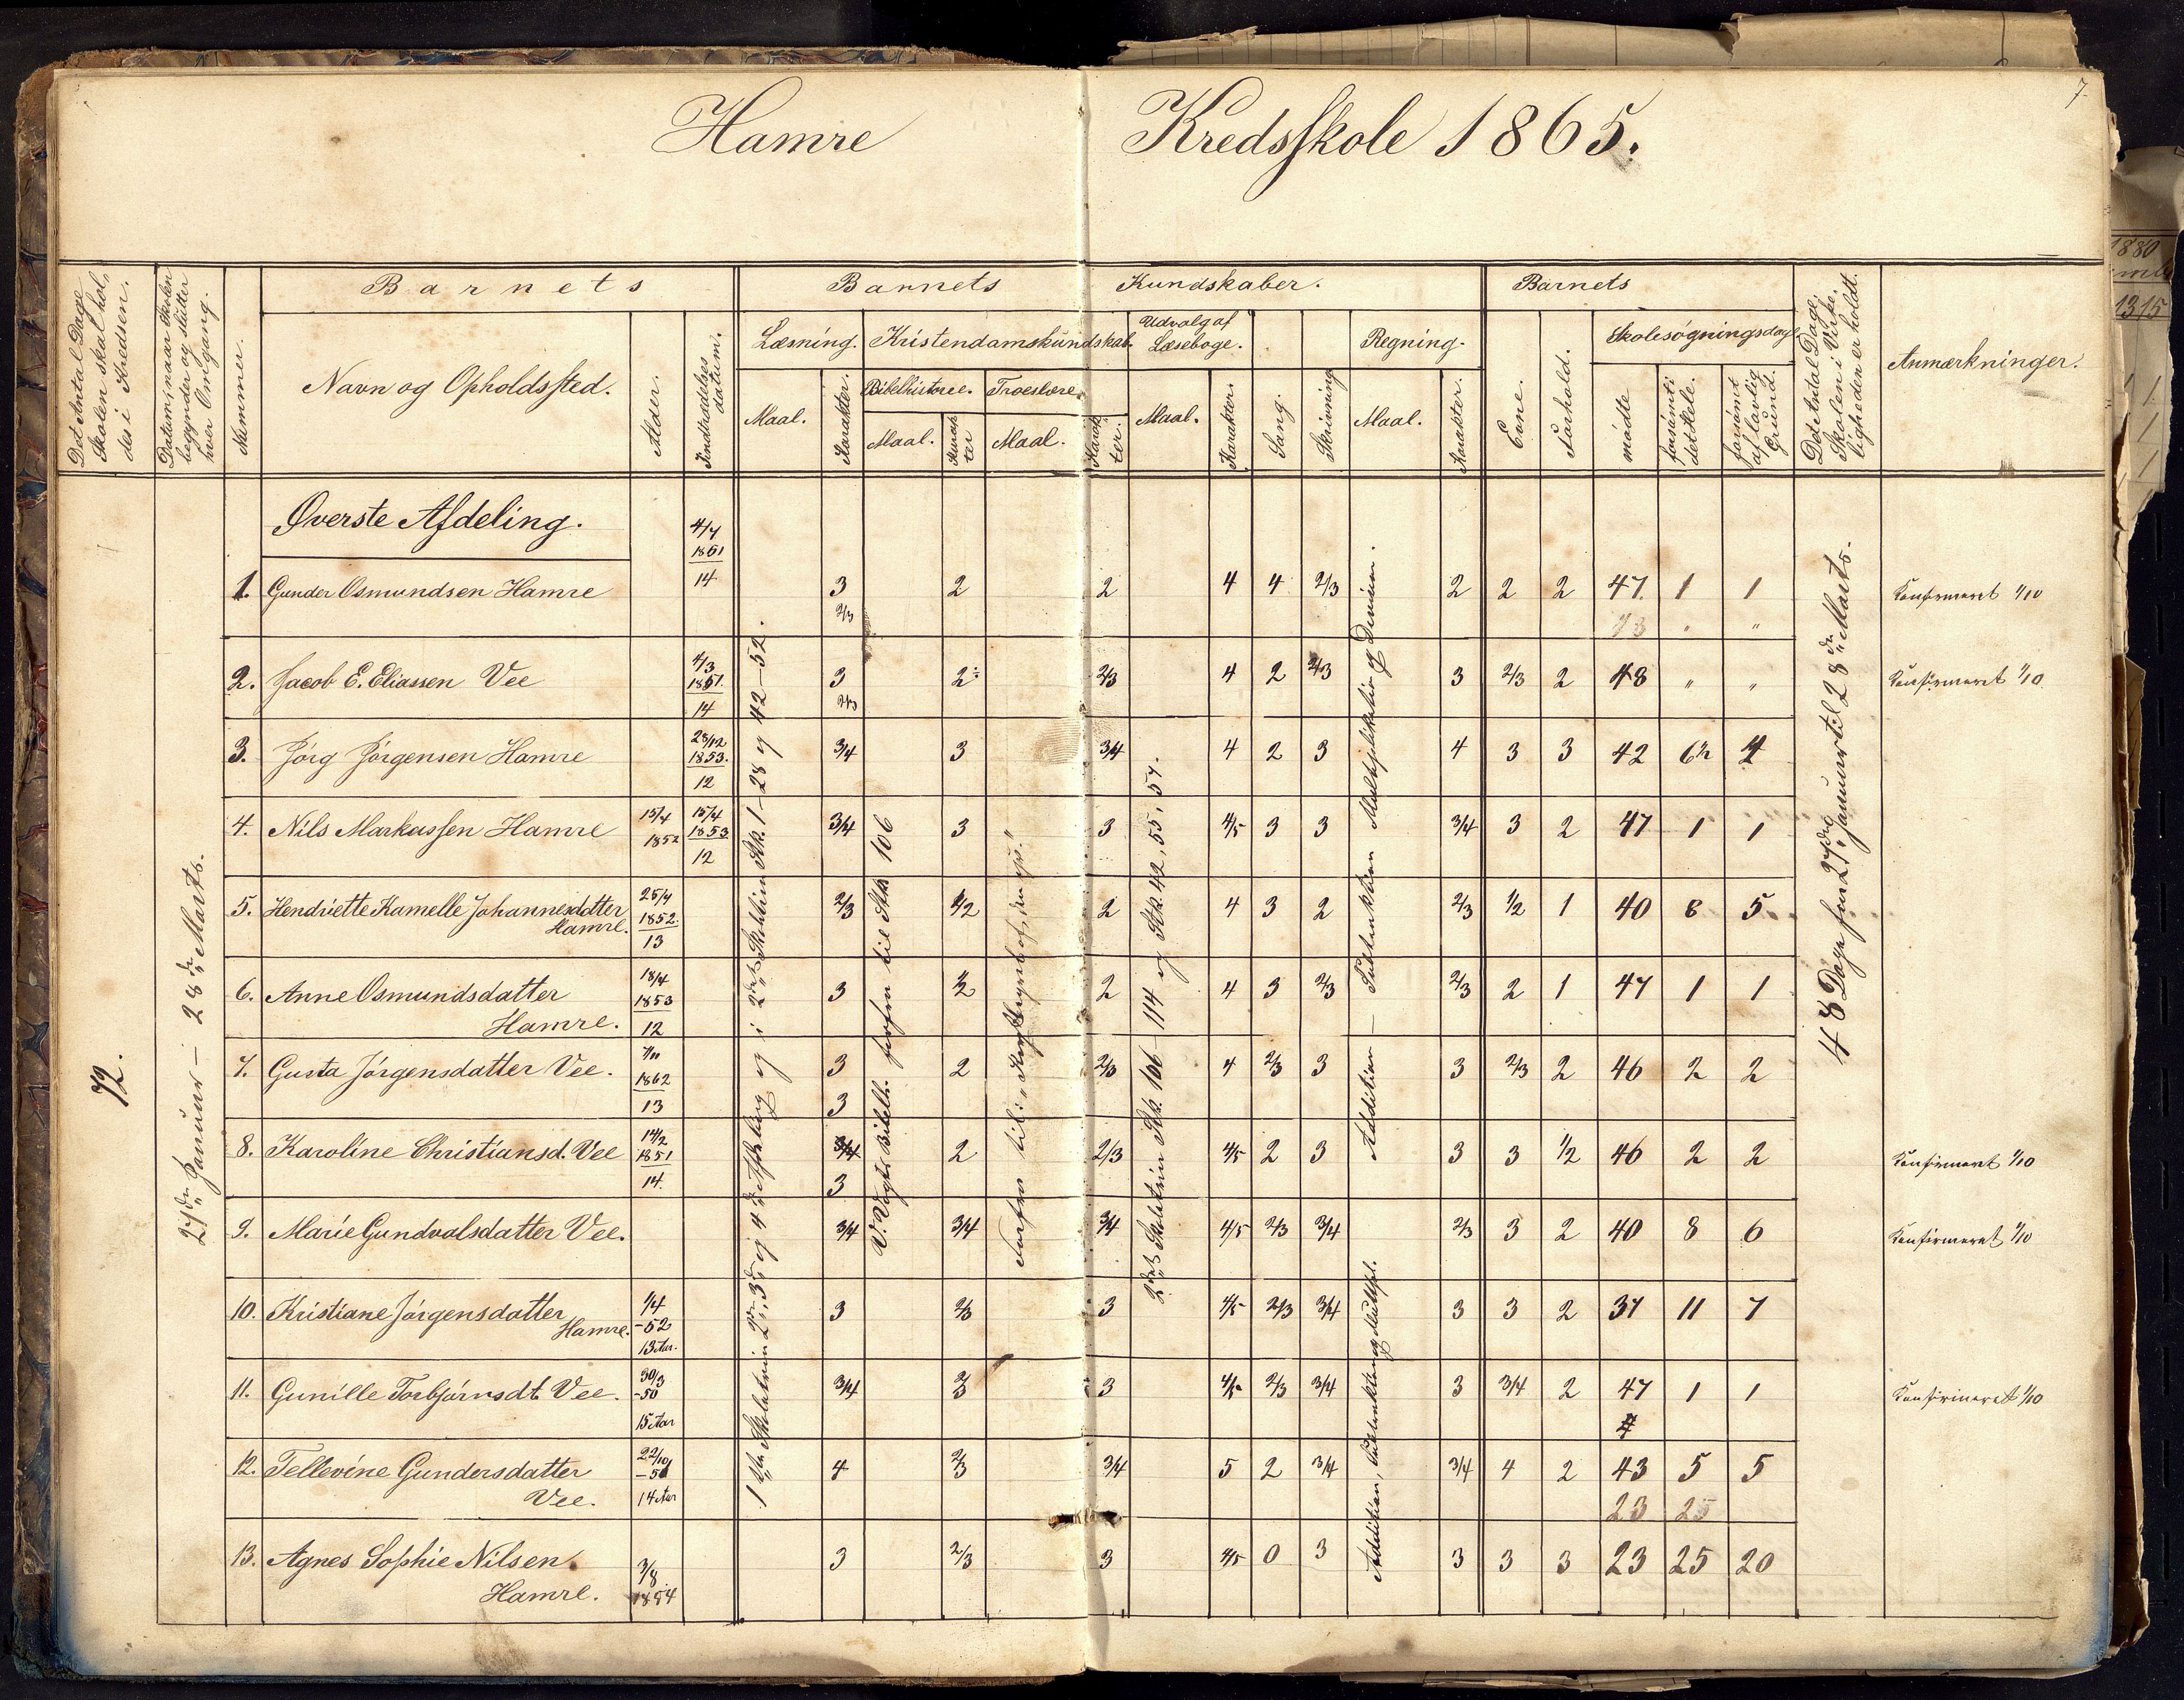 7.
Hamre Kredsskole 1865.
Det Antal Dage Skolen skal holdes i Kredsen.
Datum, naar Skolen begynder og slutter hver Omgang.
Nummer.
Barnets
Navn og Opholdssted.
Alder.
Indtrædelses datum.
Barnets Kundskaber.
Læsning.
Maal.
Karakter.
Kristendomskundskab.
Bibelhistorie.
Maal.
Karakter
Troeslære.
Maal.
Karakter.
Udvalg af Læseboge.
Maal.
Karakter.
Sang.
Skrivning
Regning.
Maal.
Karakter.
Barnets
Evne.
Forhold.
Skolesøgningsdage
mødte
forsømt i det Hele.
forsømt af lovlig Grund.
Det Antal Dage, Skolen i Virkeligheden er holdt.
Anmærkninger.
72.
27de Januar – 28de Marts.
Øverste Afdeling.
1. Gunder Osmundsen Hamre 4/7 1851 14 3 2/3 2 2 4 4 2/3 2 2 2 47 1 1 Konfirmeret 1/10
2. Jacob E. Eliassen Vee 4/3 1851 14 3 2/3 2 2/3 4 2 2/3 3 2/3 2 48 " " Konfirmeret 1/10
3. Jørg Jørgensen Hamre 28/12 1853. 12 3/4 3 3/4 4 2 3 4 3 3 42 6 4
4. Nils Markussen Hamre 15/4 1852 15/4 1853 12 3/4 3 3 4/5 3 3 3/4 3 2 47 1 1
5. Henriette Kamelle Johannesdatter Hamre. 25/4 1852. 13 2/3 1/2 2 4 3 2 2/3 1/2 1 40 8 5
6. Anne Osmundsdatter Hamre. 18/4 1853 12 3 1/2 2 4 3 2/3 2/3 2 1 47 1 1
7. Gusta Jørgensdatter Vee. 7/11 1862 13 3 3 2 2/3 4 2/3 3 3 2/3 2 46 2 2
8. Karoline Christiansd. Vee 14/2 1851 14. 3/4 3 2 2/3 4/5 2 3 3 3 1/2 46 2 2 Konfirmeret 1/10
9. Marie Gundvalsdatter Vee. 3/4 3/4 3/4 4/5 2/3 3/4 2/3 3 2 40 8 6 Konfirmeret 1/10
10. Kristiane Jørgensdatter Hamre. 1/4 -52 13 Aar. 3 2/3 3 4/5 2/3 3/4 3 3 2 37 11 7
11. Gunille Torbjørnsdt. Vee. 30/3 -50 15 Aar 3/4 2/3 3 4/5 2/3 3/4 3 3/4 2 47 1 1 Konfirmeret 1/10
12. Tellevine Gundersdatter Vee. 22/10 -51 14 Aar 4 2/3 3/4 5 2 3/4 3/4 4 2 43 5 5
23 25
13. Agnes Sophie Nilsen Hamre. 3/8 1854 3 2/3 3 4/5 0 3 3 3 3 23 25 20
1ste Skoletrin 2den, 3die og 4de Afdeling og i 2det Skoletrin Stk. 1–28 og 42–52.
V. Vogts Bibelh. forfra til Stk 106
Forfra til:
2det Skoletrin Stk. 106–114 og Stk. 42, 55, 57.
Addition – Subtraktion Multiplikation og Division.
Addition, Subtraktion og Multpl.
48 Dage fra 27de Januar til 28de Marts.